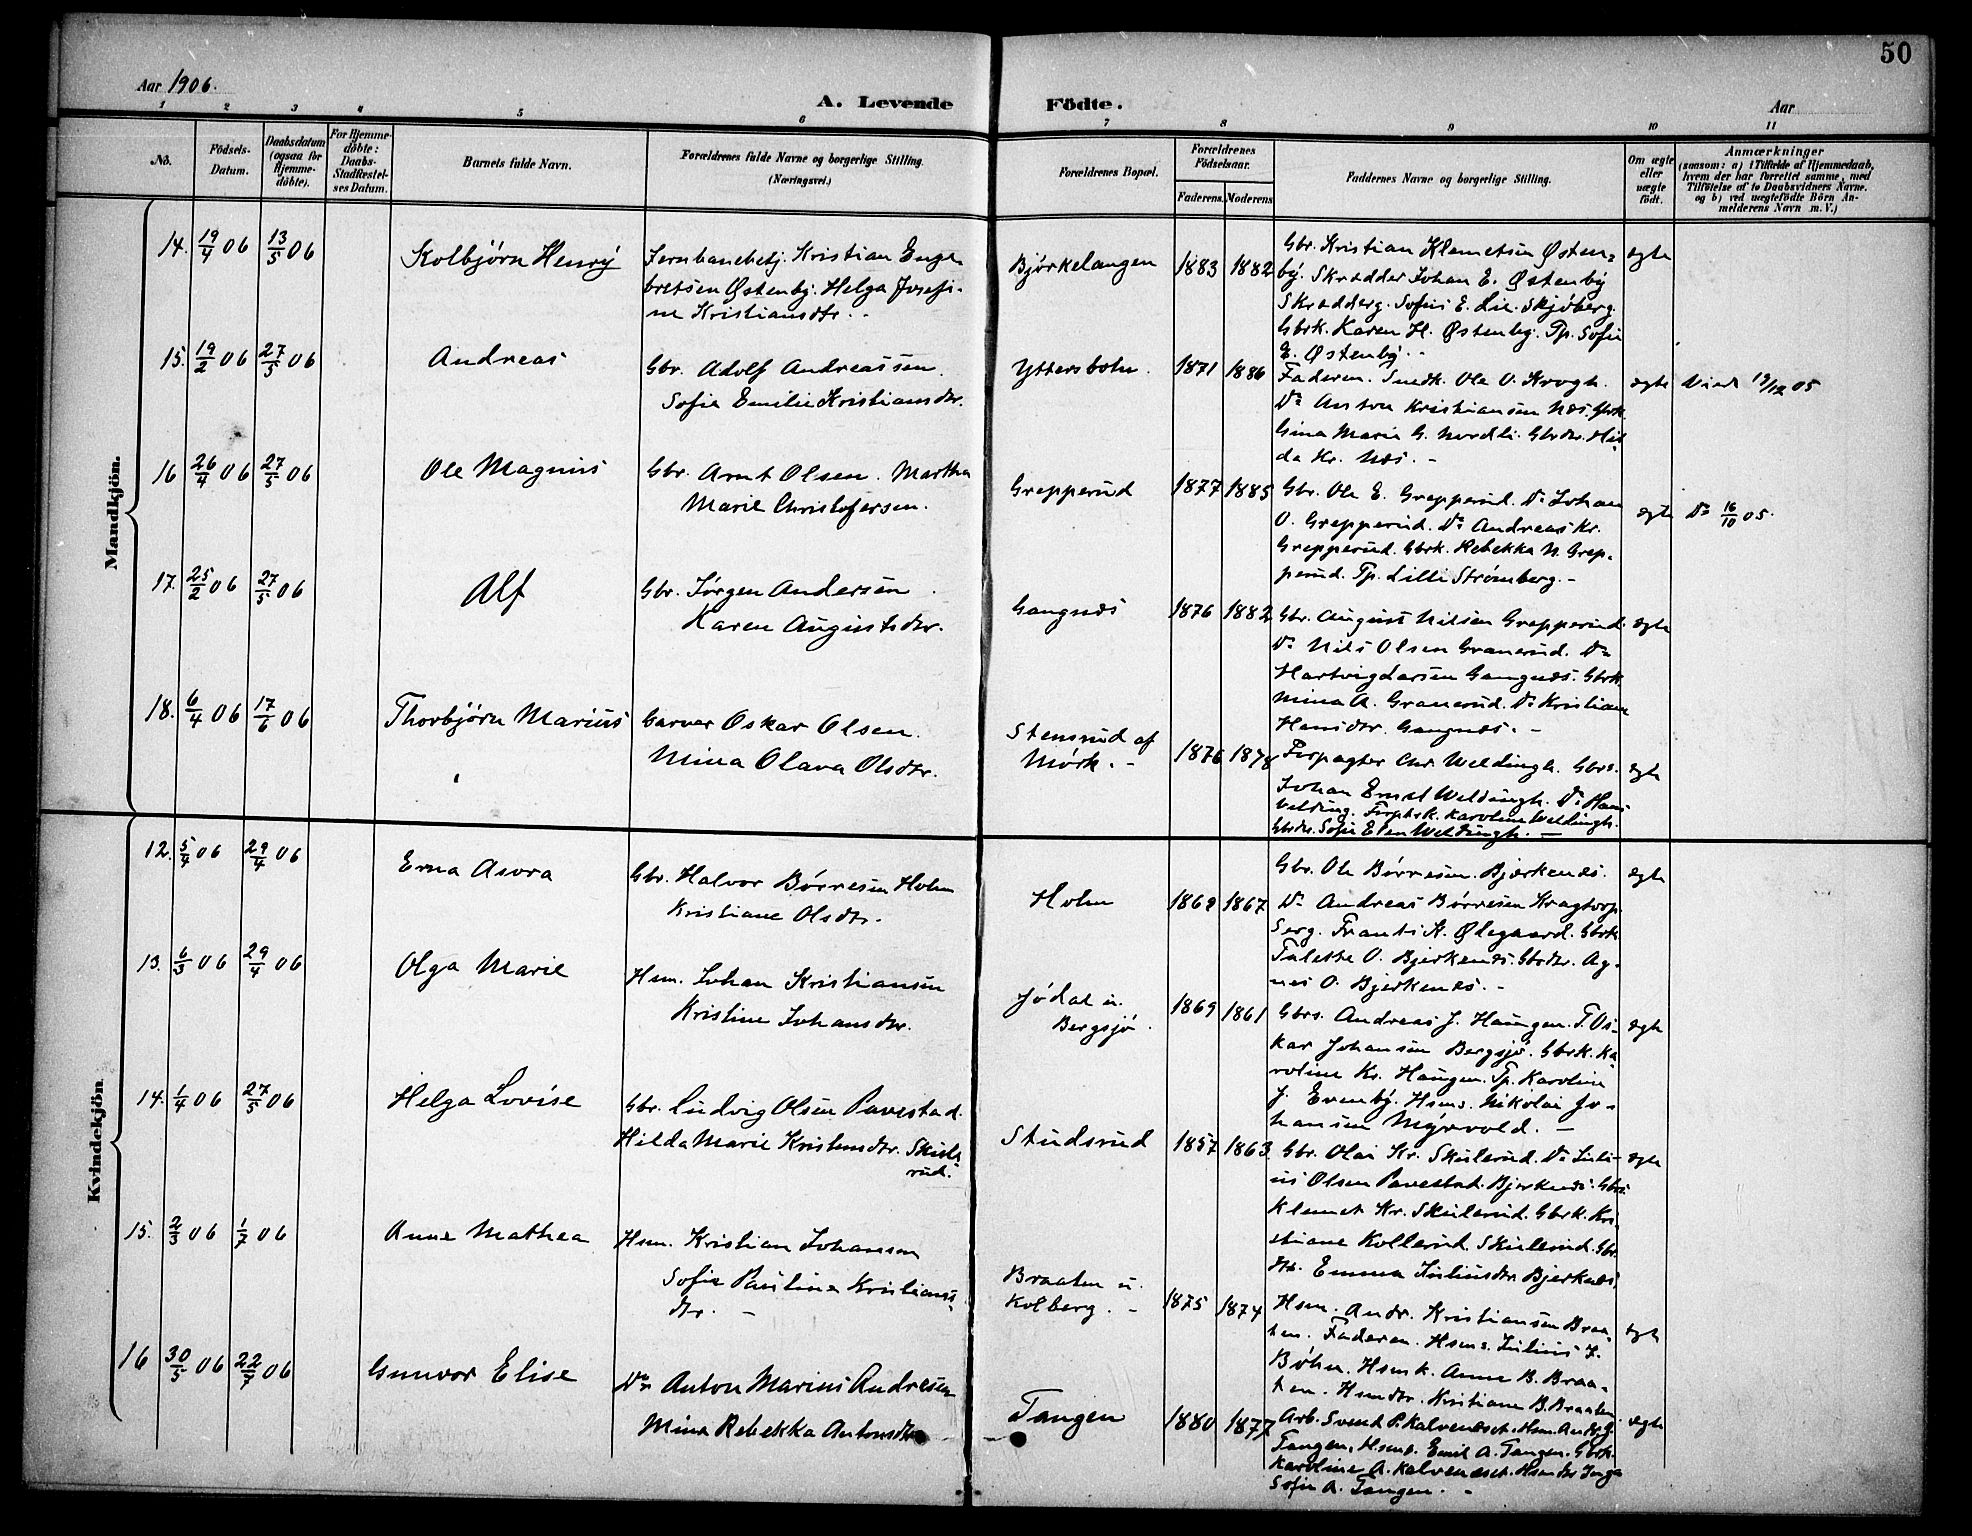 50
Aar 1906.
A. Levende Födte.
Aar
1 2 3 4 5 6 7 8 9 10 11
No.
Födsels-
Datum.
Daabsdatum
(ogsaa for
Hjemme-
döbte).
For Hjemme-
döbte:
Daabs-
Stadfæstel-
ses Datum.
Barnets fulde Navn.
Forældrenes fulde Navne og borgerlige Stilling.
(Næringsvei.)
Forældrenes Bopæl.
Forældrenes
Födselsaar.
Faderens. Moderens.
Faddernes Navne og borgerlige Stilling.
Om ægte
eller
uægte
födt.
Anmærkninger
(saasom: a) i Tilfælde af Hjemmedaab,
hvem der har forrettet samme, med
Tilföielse af to Daabsvidners Navne.
og b) ved uægtefödte Börn An-
melderens Navn m. V.)
Mandkjön.
14. 19/4 06 13/5 06
Kolbjørn Henry
Jernbanebetj. Kristian Enge-
bretsen Østenby. Helga Josefi-
ne Kristiansdtr.
Bjørkelangen
1883 1882
Gbr. Kristian Klemetsen Østen-
by. Skrædder Johan E. Østenby
Skrædderg. Sofus E. Lie. Skjøberg.
Gbrk. Karen H. Østenby. Tp. Sofie
E. Østenby.
ægte
15. 19/2 06 27/5 06
Andreas
Gbr. Adolf Andreassen.
Sofie Emilie Kristiansdtr.
Yttersbøtn.
1871 1886
Faderen. Snedk. Ole O. Krogh.
Do Anton Kristiansen Næs. Gbrk.
Gina Marie G. Nordli. Gbrdtr. Hil-
da Kr. Næs. -
ægte
Viet 19/12 05
16 26/4 06 27/5 06
Ole Magnus
Gbr. Arnt Olsen. Martha
Marie Christofersen.
Grepperud
1877 1885
Gbr. Ole E. Grepperud. Do Johan
O. Grepperud. Do Andreas Kr.
Grepperud. Gbrk. Rebekka N. Grep-
perud. Tp. Lilli Strømberg. -
ægte
Do 16/10 05.
17. 25/2 06 27/5 06
Alf
Gbr. Jørgen Andersen
Karen Augustsdtr.
Gangnæs
1876 1882
Gbr. August Nilsen Grepperud.
Do Nils Olsen Granerud. Do
Hartvig Larsen Gangnæs. Gbrk.
Mina A. Granerud. Do Kristiane
Hansdtr. Gangnæs. -
ægte
18. 6/4 06 17/6 06
Thorbjørn Marius
Garver Oskar Olsen.
Mina Olava Olsdtr.
Stensrud af
Mørk. -
1876 1878
Forpagter Chr. Weldingh. Gbrs.
Johan Ernst Weldingh. Do Hans
Velding. Forptsk. Karoline Weldingh.
Gbrdtr. Sofie Elen Weldingh. -
ægte
Kvindekjön.
12. 5/4 06 29/4 06
Erna Asora
Gbr. Halvor Børresen Holm
Kristiane Olsdtr.
Holm
1869 1867
Gbr. Ole Børresen. Bjerkenæs.
Do Andreas Børresen Kragtorp.
Serg. Frants A. Ødegaard. Gbrk.
Talette O. Bjerkenæs. Gbrdtr. Ag-
nes O. Bjerkenæs. -
ægte
13. 6/3 06 29/4 06
Olga Marie
Hsm. Johan Kristiansen
Kristine Johansdtr.
Jødal u.
Bergsjø.
1869 1861
Gbrs. Andreas J. Haugen. T. Os-
kar Johansen Bergsjø. Gbrk. Ka-
roline Kr. Haugen. Tp. Karoline
J. Evenby. Hsms. Nikolai Jo-
hansen Myrvold. -
ægte
14. 1/4 06 27/5 06
Helga Lovise
Gbr. Ludvig Olsen Pavestad.
Hilda Marie Kristensdtr. Skule-
rud.
Studsrud
1857 1863
Gbr. Olai Kr. Skulerud. Do Juli-
us Olsen Pavestad. Bjerkenæs. Gbrs.
Klemet Kr. Skulerud. Gbrk. Kri-
stiane Kollerud. Skulerud. Gbr.
dtr. Emma Juliusdtr Bjerkenæs.
ægte
15. 2/3 06 1/7 06
Anne Mathea
Hsm. Kristian Johansen
Sofie Pauline Kristians-
dtr. -
Braaten u.
Kolberg. -
1875 1874
Hsm. Andr. Kristiansen Braa-
ten. Faderen. Hsms. Julius J.
Bøhn. Hsmk. Anne B. Braa-
ten. Hsmdtr. Kristiane B. Braaten.
ægte
16 30/5 06 22/7 06
Gunvor Elise
Do Anton Marius Andresen
Mina Rebekka Antonsdtr
Tangen
1880 1877
Arb. Svend P. Kalvenæset. Hsm. Andr. G.
Tangen. Hsms. Emil A. Tangen. Gbrk.
Karoline A. Kalvenæset. Hsmdtr Inga
Sofie A. Tangen. -
ægte